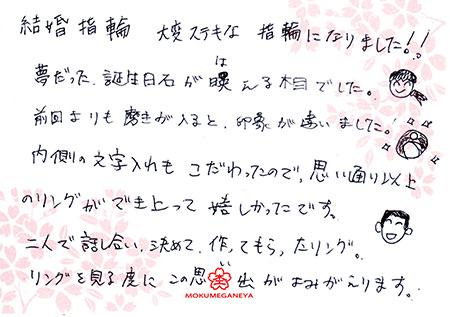 結婚指輪 大変ステキな 指輪になりました!!
夢だった、誕生日石が映(は)える木目でした。
前回よりも磨きが入ると、印象が違いました!
内側の文字入れも こだわったので、思い通り以上
のリングができ上って 嬉しかったです。
二人で話し合い、決めて、作ってもらったリング。
リングを見る度に この思い出がよみがえります。
MOKUMEGANEYA